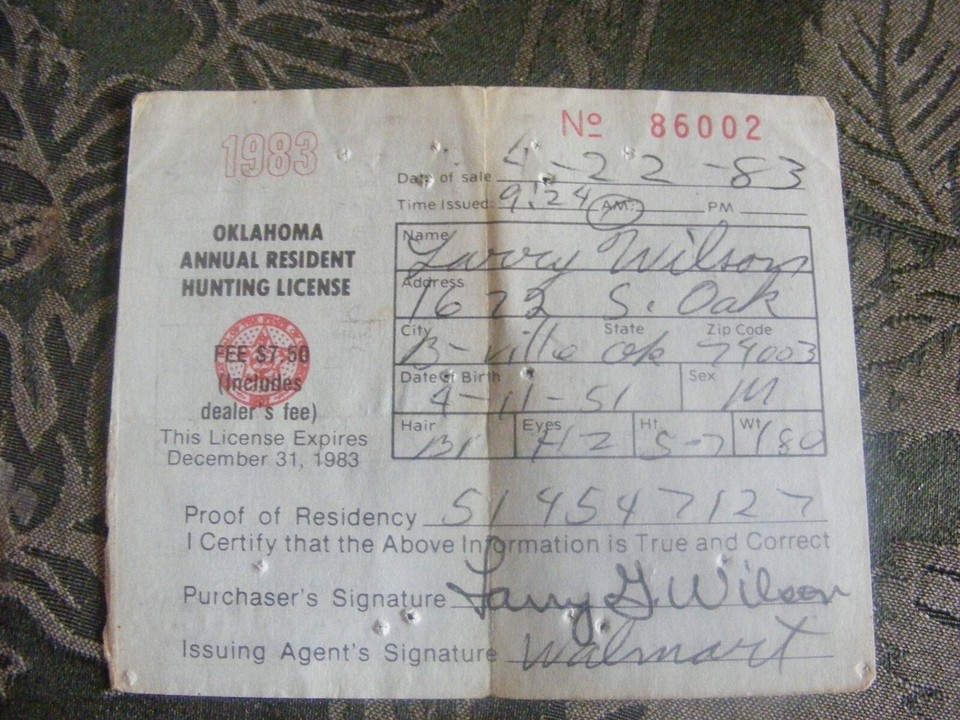 1983
Nº 86002
Date of sale 4-22-83
Time Issued: 9:24 AM: PM
OKLAHOMA
ANNUAL RESIDENT
HUNTING LICENSE
FEE $7.50
(Includes
dealer's fee)
This License Expires
December 31, 1983
Name
Larry Wilson
Address
1672 S. Oak
City State Zip Code
B-ville Ok 74003
Date of Birth Sex
4-11-51 M
Hair Eyes Ht. Wt.
Br HZ 5-7 180
Proof of Residency 514547127
I Certify that the Above Information is True and Correct
Purchaser's Signature Larry G. Wilson
Issuing Agent's Signature Walmart